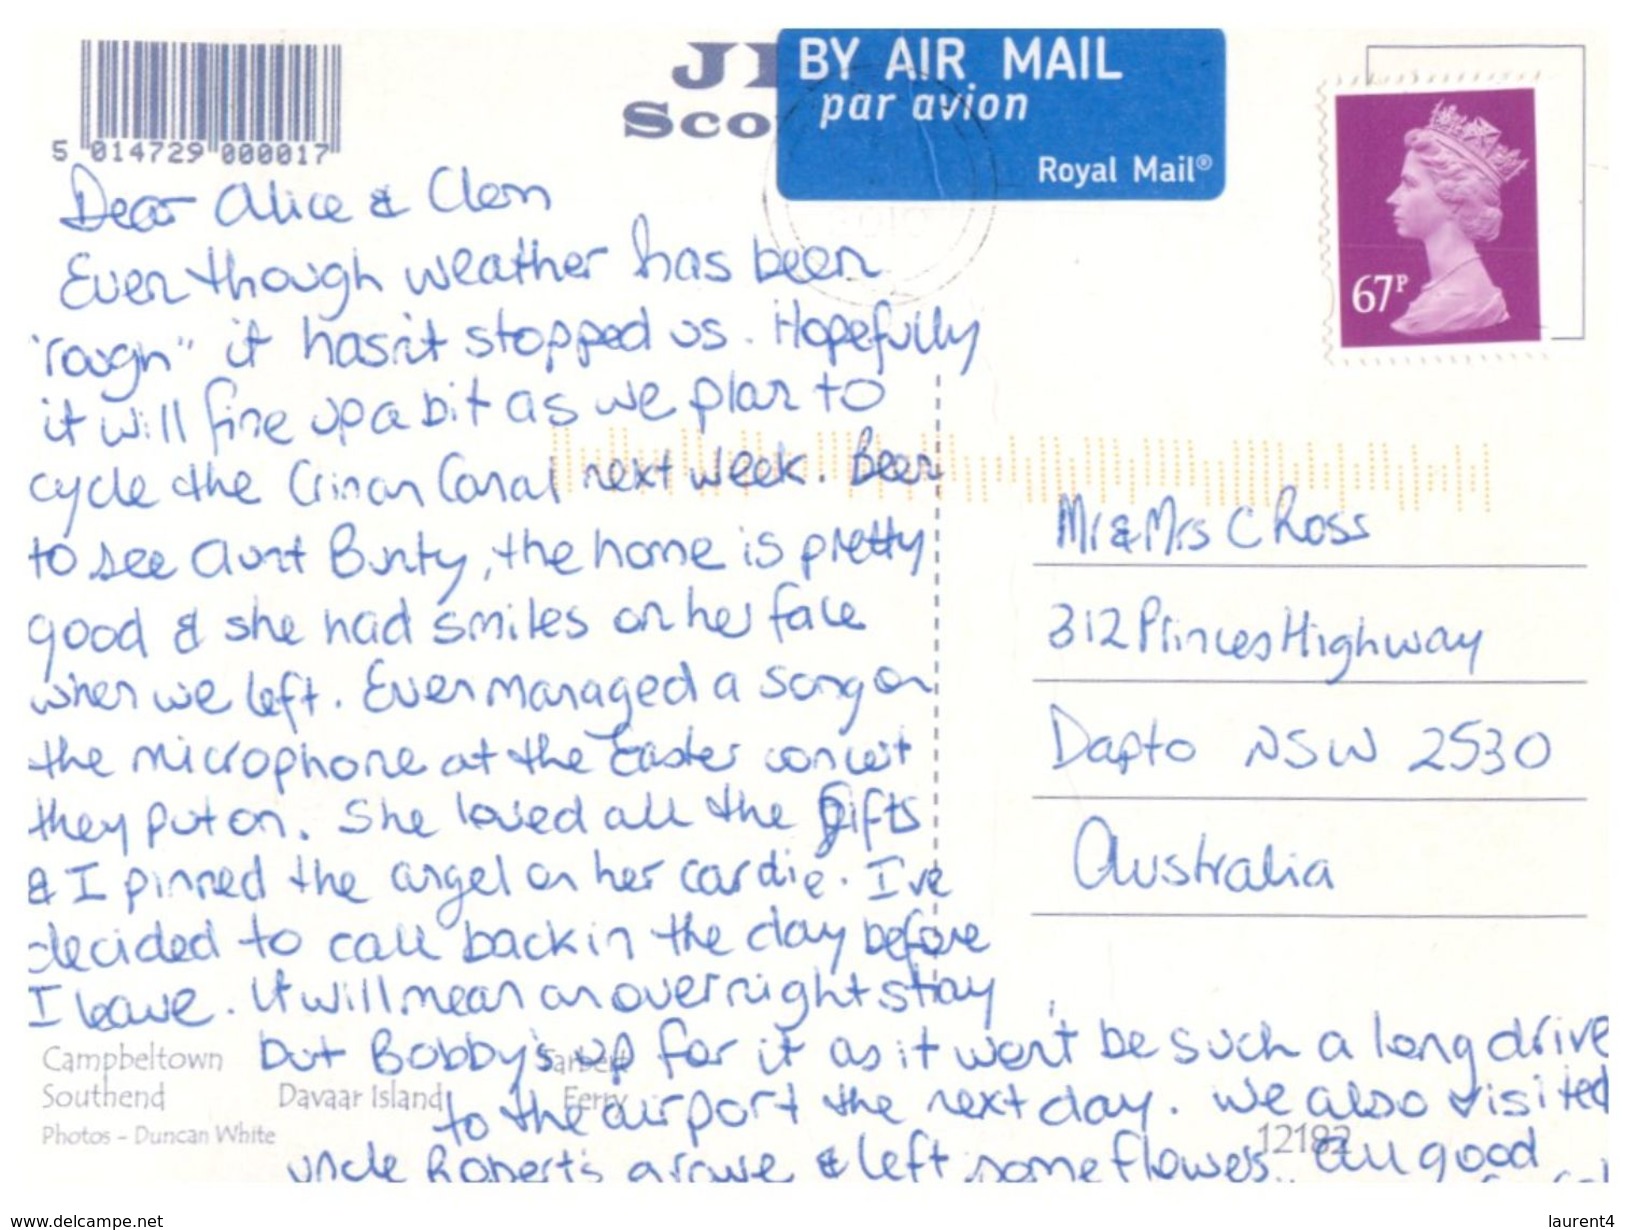 5 014729 000017
BY AIR MAIL
par avion
Royal Mail®
67P
Dear Alice & Clem
Even though weather has been
"rough" it hasn't stopped us. Hopefully
it will fine up a bit as we plan to
cycle the Crinan Canal next week. Been
to see Aunt Bunty, the home is pretty
good & she had smiles on her face
when we left. Even managed a song on
the microphone at the Easter concert
they put on. She loved all the gifts
& I pinned the angel on her cardie. I've
decided to call back in the day before
I leave. It will mean an overnight stay
but Bobby's up for it as it won't be such a long drive
to the airport the next day. We also visited
uncle Robert's grave & left some flowers. All good
Mr & Mrs C Ross
312 Princes Highway
Dapto NSW 2530
Australia
Campbeltown Tarbert
Southend Davaar Island Ferry
Photos - Duncan White
12182
www.delcampe.net
laurent4